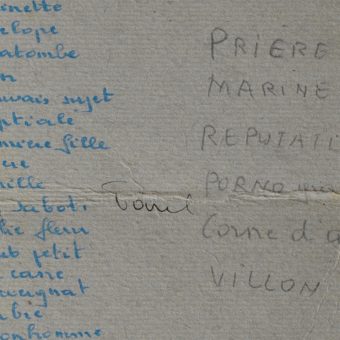 inette
elope
atombe
on
uvais sujet
ptiale
mière fille
ère
mille
sabots
lie fleur
ub petit
casse
uvergnat
mbie
onhomme
PRIÈRE
MARINE
REPUTATI
PORNO
Corne d'a
VILLON